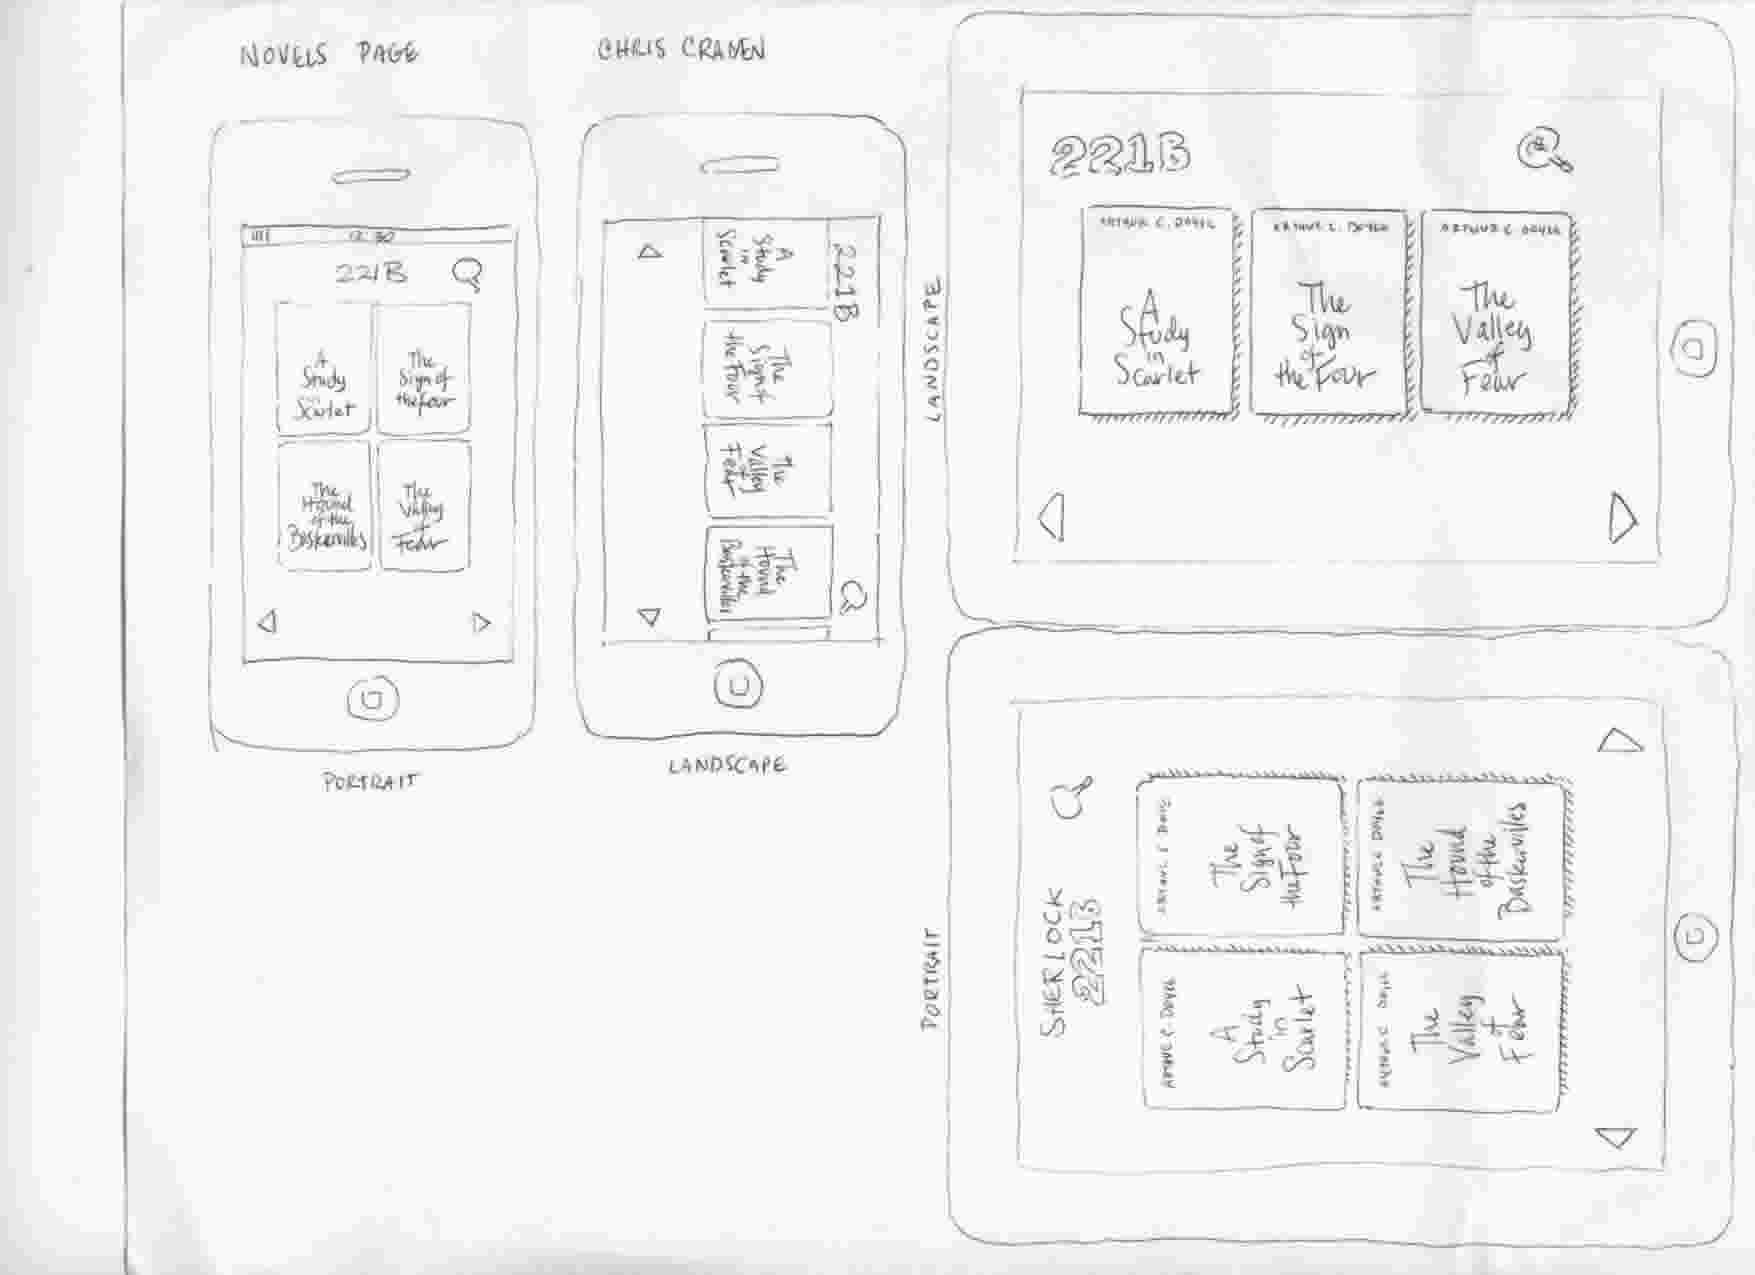 NOVELS PAGE
CHRIS CRAVEN
12:30
221B
A
Study
in
Scarlet
The
Sign of
the Four
The
Hound
of the
Baskervilles
The
Valley
of
Fear
PORTRAIT
221B
A
Study
in
Scarlet
The
Sign of
the Four
The
Valley
of
Fear
The
Hound
of the
Baskervilles
LANDSCAPE
LANDSCAPE
221B
ARTHUR C. DOYLE
A
Study
in
Scarlet
ARTHUR C. DOYLE
The
Sign
of
the Four
ARTHUR C DOYLE
The
Valley
of
Fear
PORTRAIT
SHERLOCK
221B
ARTHUR C. DOYLE
A
Study
in
Scarlet
ARTHUR C DOYLE
The
Sign of
the Four
ARTHUR C DOYLE
The
Valley
of
Fear
ARTHUR C DOYLE
The
Hound
of the
Baskervilles